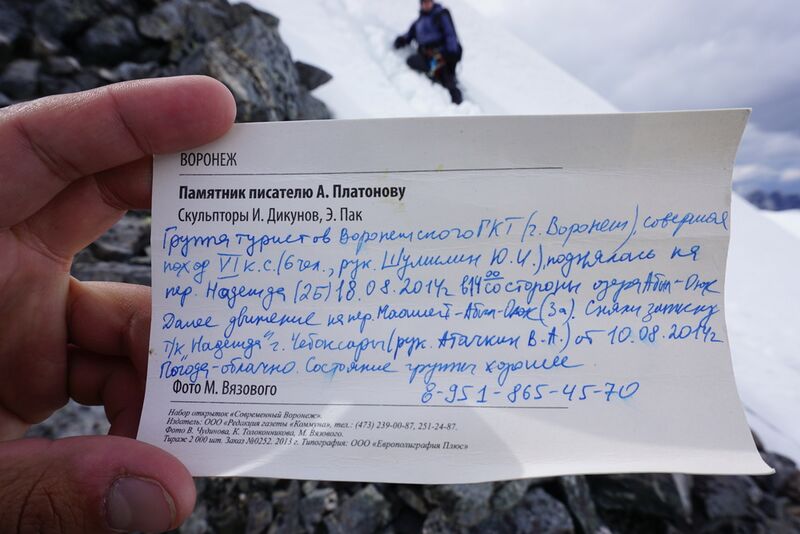 ВОРОНЕЖ
Памятник писателю А. Платонову
Скульпторы И. Дикунов, Э. Пак
Группа туристов Воронежского ГКТ (г. Воронеж), совершая
поход VI к.с. (6 чел., рук. Шулислин Ю.И.), поднялась на
пер. Надежда (2Б) 18.08.2014г в 14⁰⁰ со стороны озера Абыл-Оюк
Далее движение на пер. Маашей-Абыл-Оюк (3а). Сняли записку
т/к "Надежда" г. Чебоксары (рук. Атачкин В.А.) от 10.08.2014г
Погода-облачно. Состояние группы хорошее
Фото М. Вязового
8-951-865-45-70
Набор открыток «Современный Воронеж».
Издатель: ООО «Редакция газеты «Коммуна», тел.: (473) 239-00-87, 251-24-87.
Фото В. Чудинова, К. Толоконникова, М. Вязового.
Тираж 2 000 шт. Заказ №0252. 2013 г. Типография: ООО «Европолиграфия Плюс»